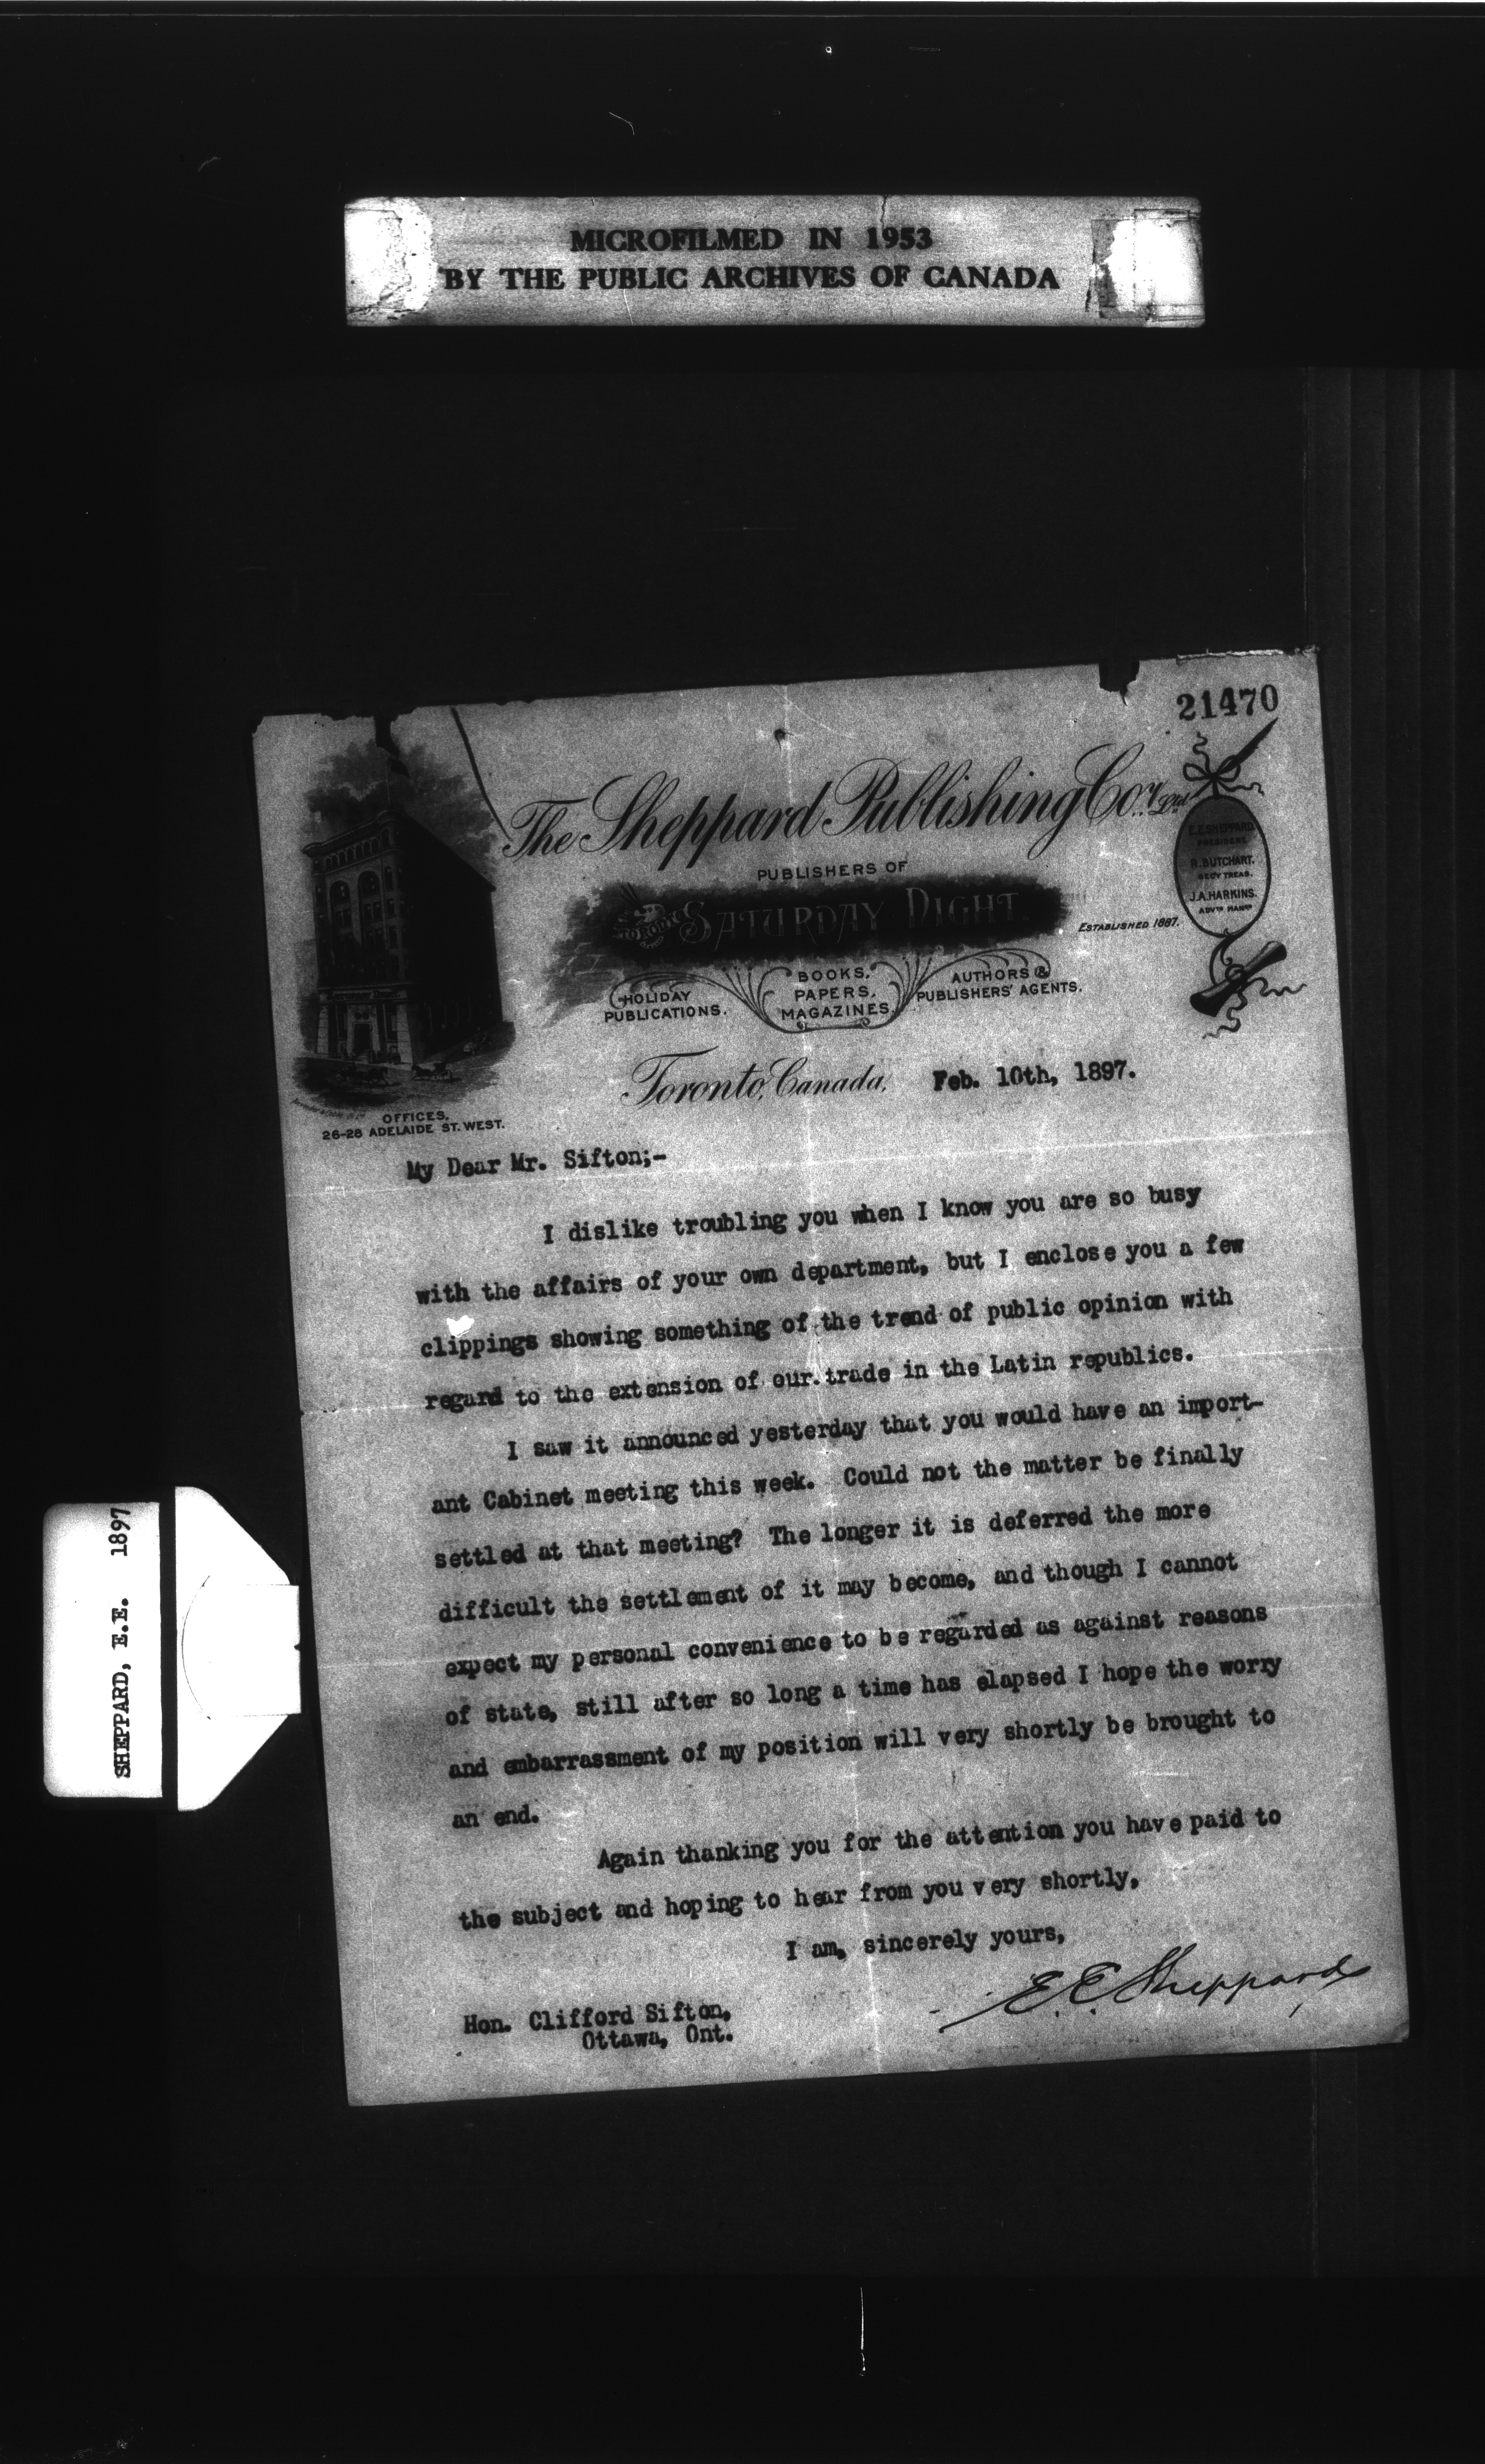 MICROFILMED IN 1953
BY THE PUBLIC ARCHIVES OF CANADA
21470
The Sheppard Publishing Coy., Ltd
E.E. SHEPPARD,
PRESIDENT.
R. BUTCHART.
SECY TREAS.
J.A. HARKINS.
ADVTG MANGR
PUBLISHERS OF
TORONTO
SATURDAY NIGHT.
ESTABLISHED 1887.
HOLIDAY
PUBLICATIONS.
BOOKS,
PAPERS,
MAGAZINES.
AUTHORS &
PUBLISHERS' AGENTS.
OFFICES,
26-28 ADELAIDE ST. WEST.
Toronto, Canada, Feb. 10th, 1897.
My Dear Mr. Sifton;-
I dislike troubling you when I know you are so busy
with the affairs of your own department, but I enclose you a few
clippings showing something of the trend of public opinion with
regard to the extension of our trade in the Latin republics.
I saw it announced yesterday that you would have an import-
ant Cabinet meeting this week. Could not the matter be finally
settled at that meeting? The longer it is deferred the more
difficult the settlement of it may become, and though I cannot
expect my personal convenience to be regarded as against reasons
of state, still after so long a time has elapsed I hope the worry
and embarrassment of my position will very shortly be brought to
an end.
Again thanking you for the attention you have paid to
the subject and hoping to hear from you very shortly,
I am, sincerely yours,
E. E. Sheppard
Hon. Clifford Sifton,
Ottawa, Ont.
SHEPPARD, E.E. 1897